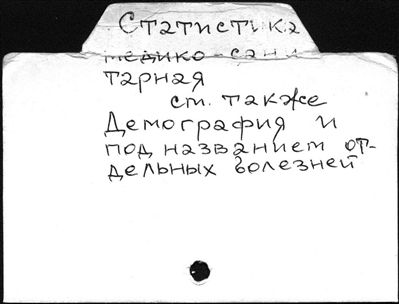 Статистика
медико-сани
тарная
см. также
Демография и
под названием от-
дельных болезней